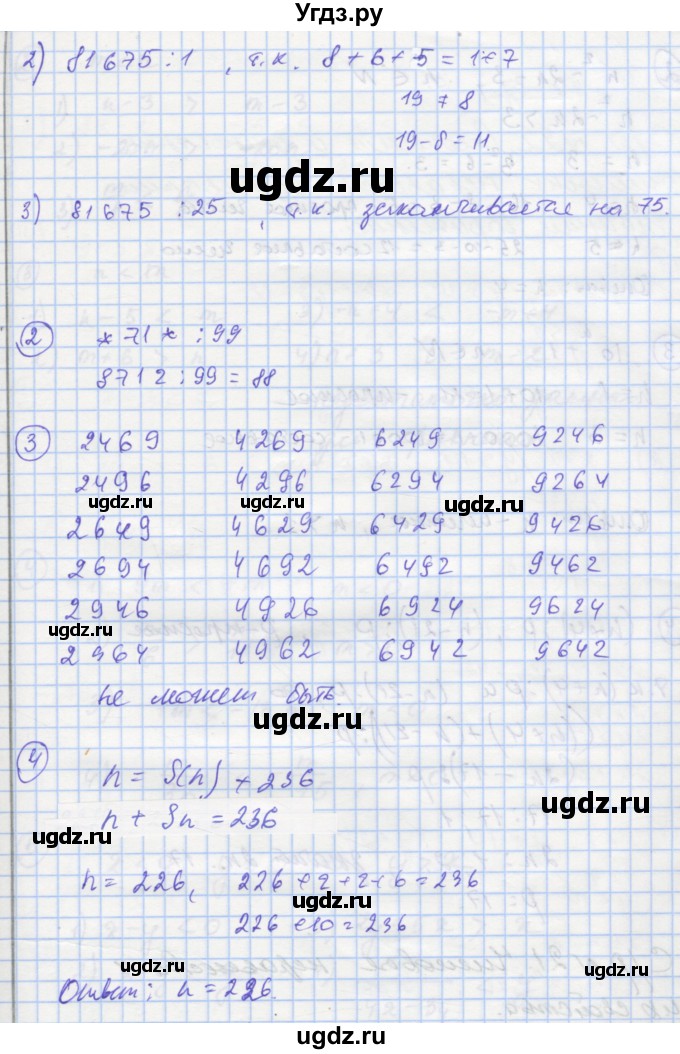 Угдз.ру
2) 81675 : 1 , т.к. 8+6+5 = 1+7
19 ≠ 8
19-8 = 11
ugdz.ru
3) 81675 : 25 , т.к. заканчивается на 75.
ugdz.ru
2 *71* : 99
8712 : 99 = 88
3 2469 4269 6249 9246
2496 4296 6294 9264
ugdz.ru ugdz.ru ugdz.ru
2649 4629 6429 9426
2694 4692 6492 9462
2946 4926 6924 9624
ugdz.ru ugdz.ru
2964 4962 6942 9642
не может быть.
ugdz.ru
4 n = S(n) + 236
ugdz.ru
n + Sn = 236
ugdz.ru
n = 226, 226+2+2+6 = 236
ugdz.ru
226+10 = 236
ugdz.ru
Ответ: n = 226.
ugdz.ru
ugdz.ru